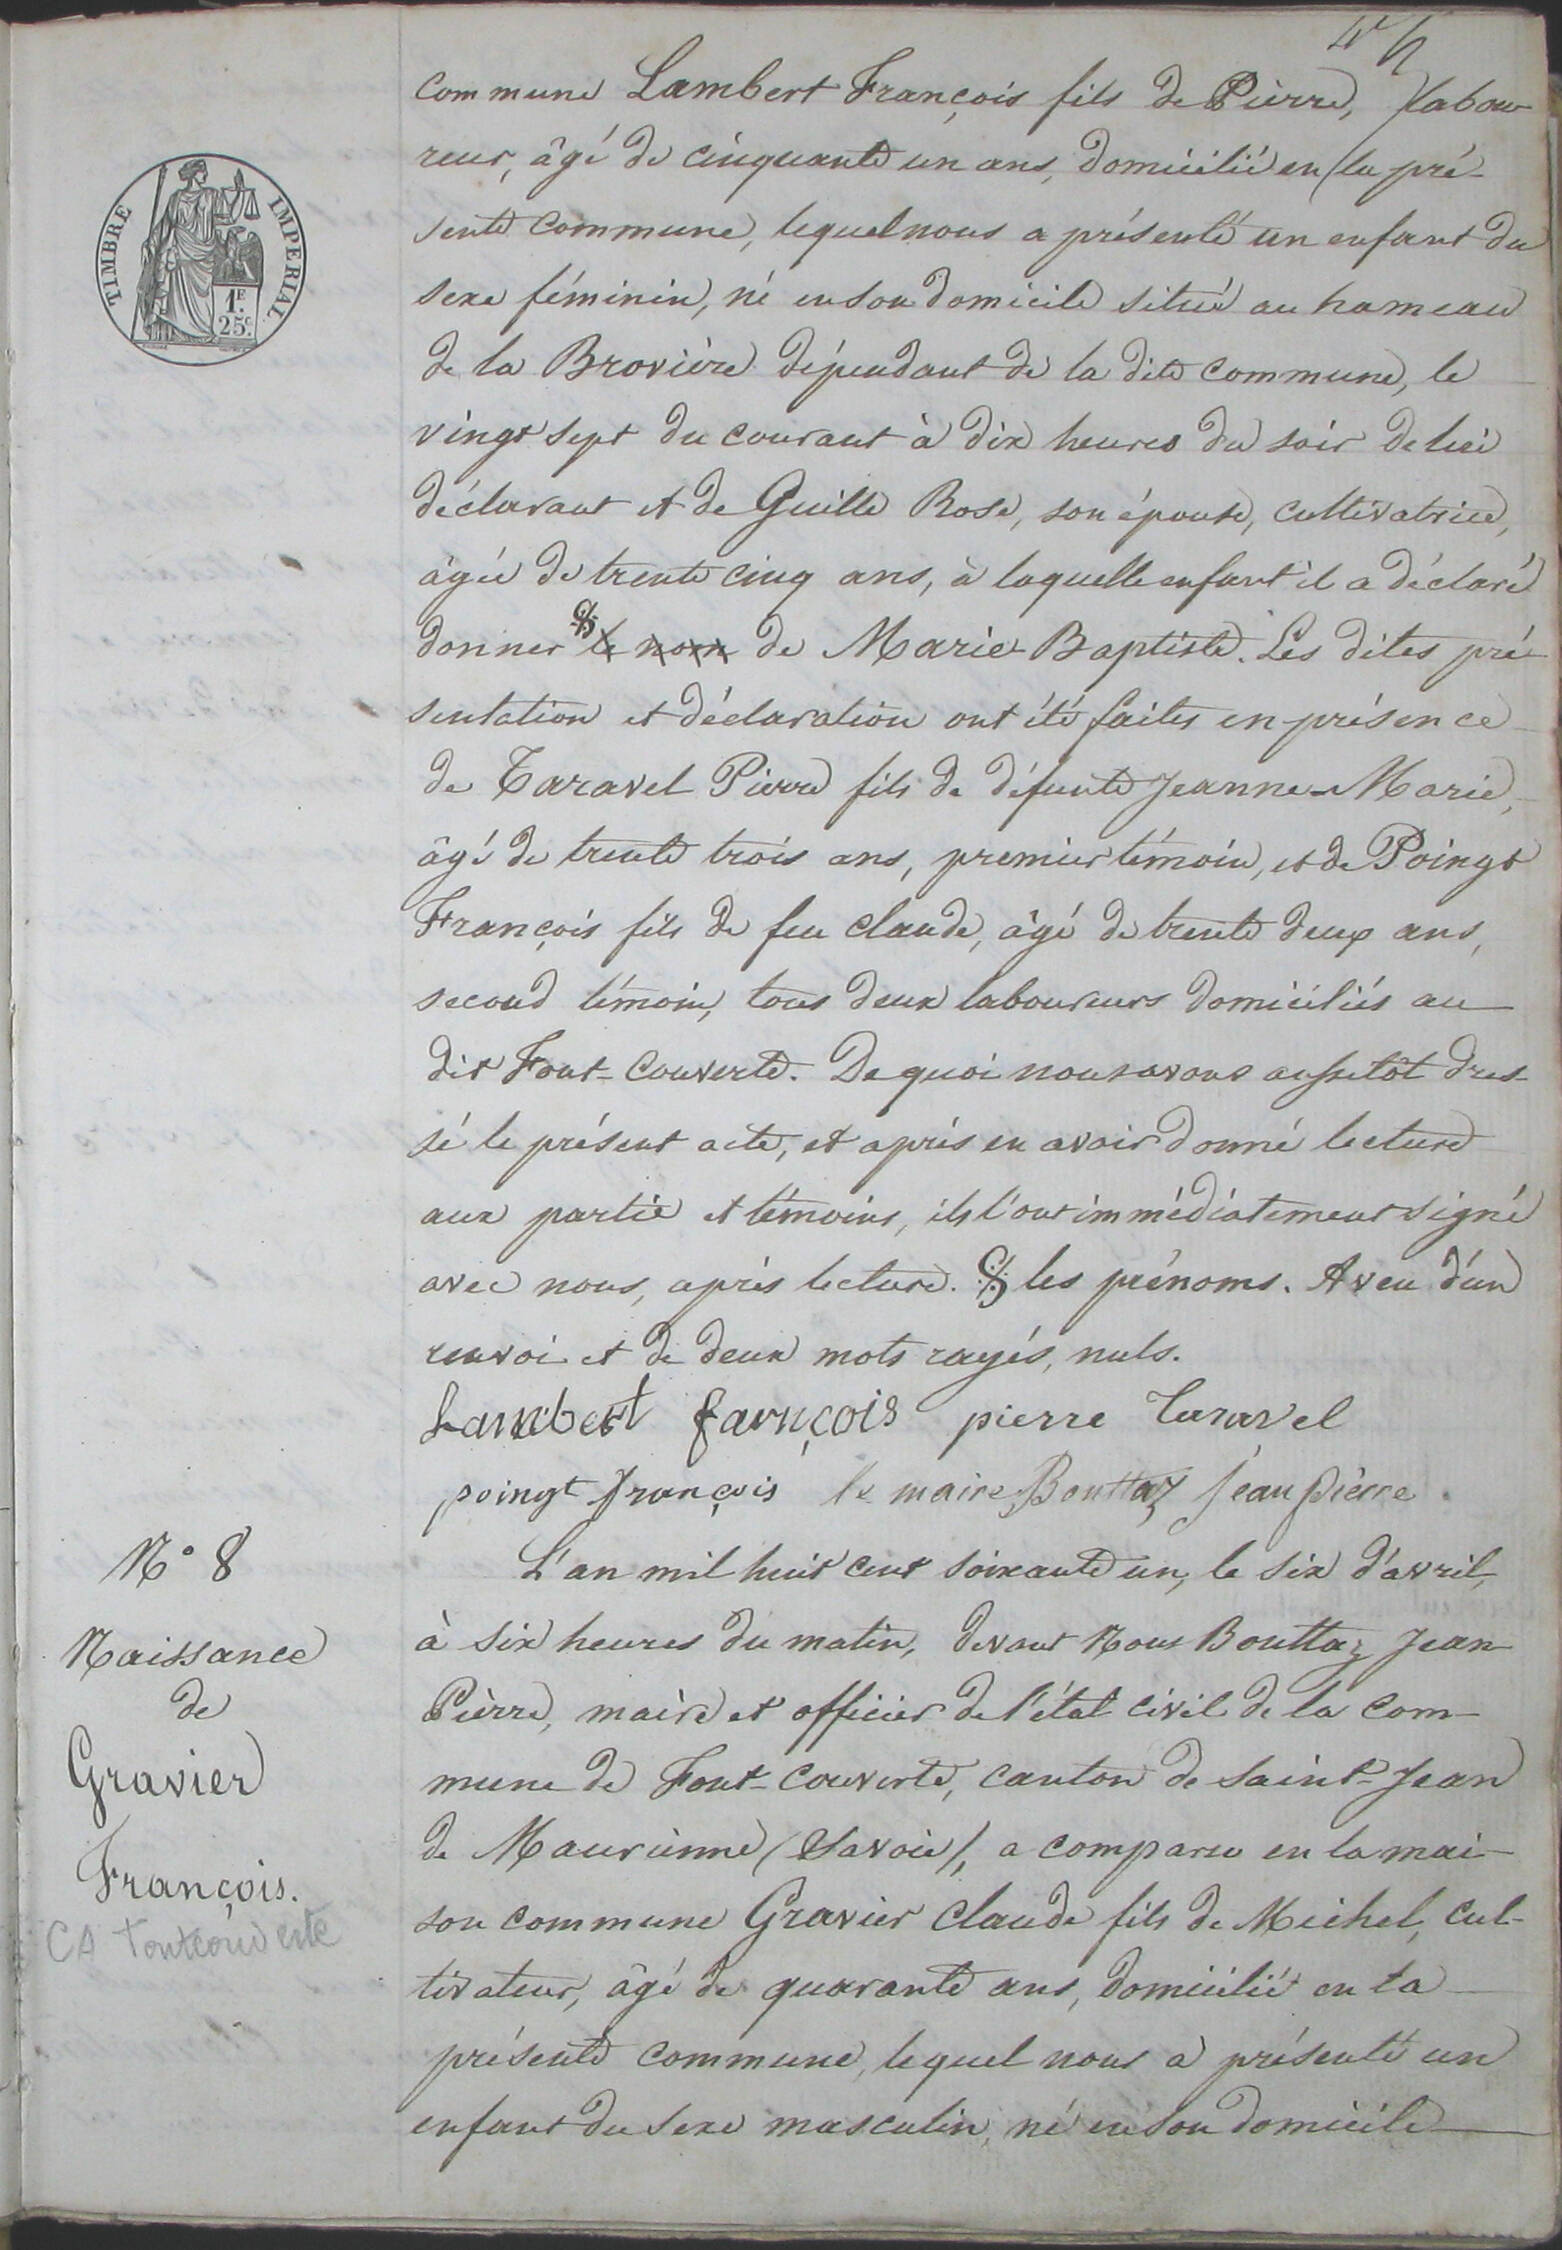 commune Lambert François fils de Pierre, labou
reur, âgé de cinquante un ans, domicilié en la pré-
sente commune, lequel nous a présenté un enfant du
sexe féminin, né en son domicile situé au hameau
de la Brovière dépendant de la dite commune, le
vingt sept du courant à dix heures du soir de lui
déclarant et de Guille Rose, son épouse, cultivatrice,
âgée de trente cinq ans, à laquelle enfant il a déclaré
donner le nom de Marie Baptiste. Les dites pré-
sentation et déclaration ont été faites en présence
de Taravel Pierre fils de défunte Jeanne-Marie,
âgé de trente trois ans, premier témoin, et de Poingt
François fils de feu claude, âgé de trente deux ans,
second témoin, tous deux laboureurs domiciliés au
dit Font-couverte. De quoi nous avons aussitôt dres-
sé le présent acte, et après en avoir donné lecture
aux partie et témoins, ils l'ont immédiatement signé
avec nous, après lecture. les prénoms. Aveu d'un
renvoi et de deux mots rayés, nuls.
Lambert françois pierre taravel
poingt françois le maire Bouttaz jean pierre
TIMBRE IMPERIAL
1F.
25c.
N° 8
Naissance
de
Gravier
François.
CA Fontcouverte
L'an mil huit cent soixante un, le six d'avril,
à six heures du matin, devant Nous Bouttaz Jean
Pierre, maire et officier de l'état civil de la com-
mune de Font-couverte, canton de Saint-Jean
de Maurienne (Savoie), a comparu en la mai-
son commune Gravier Claude fils de Michel, cul-
tivateur, âgé de quarante ans, domicilié en la
présente commune, lequel nous a présenté un
enfant du sexe masculin, né en son domicile